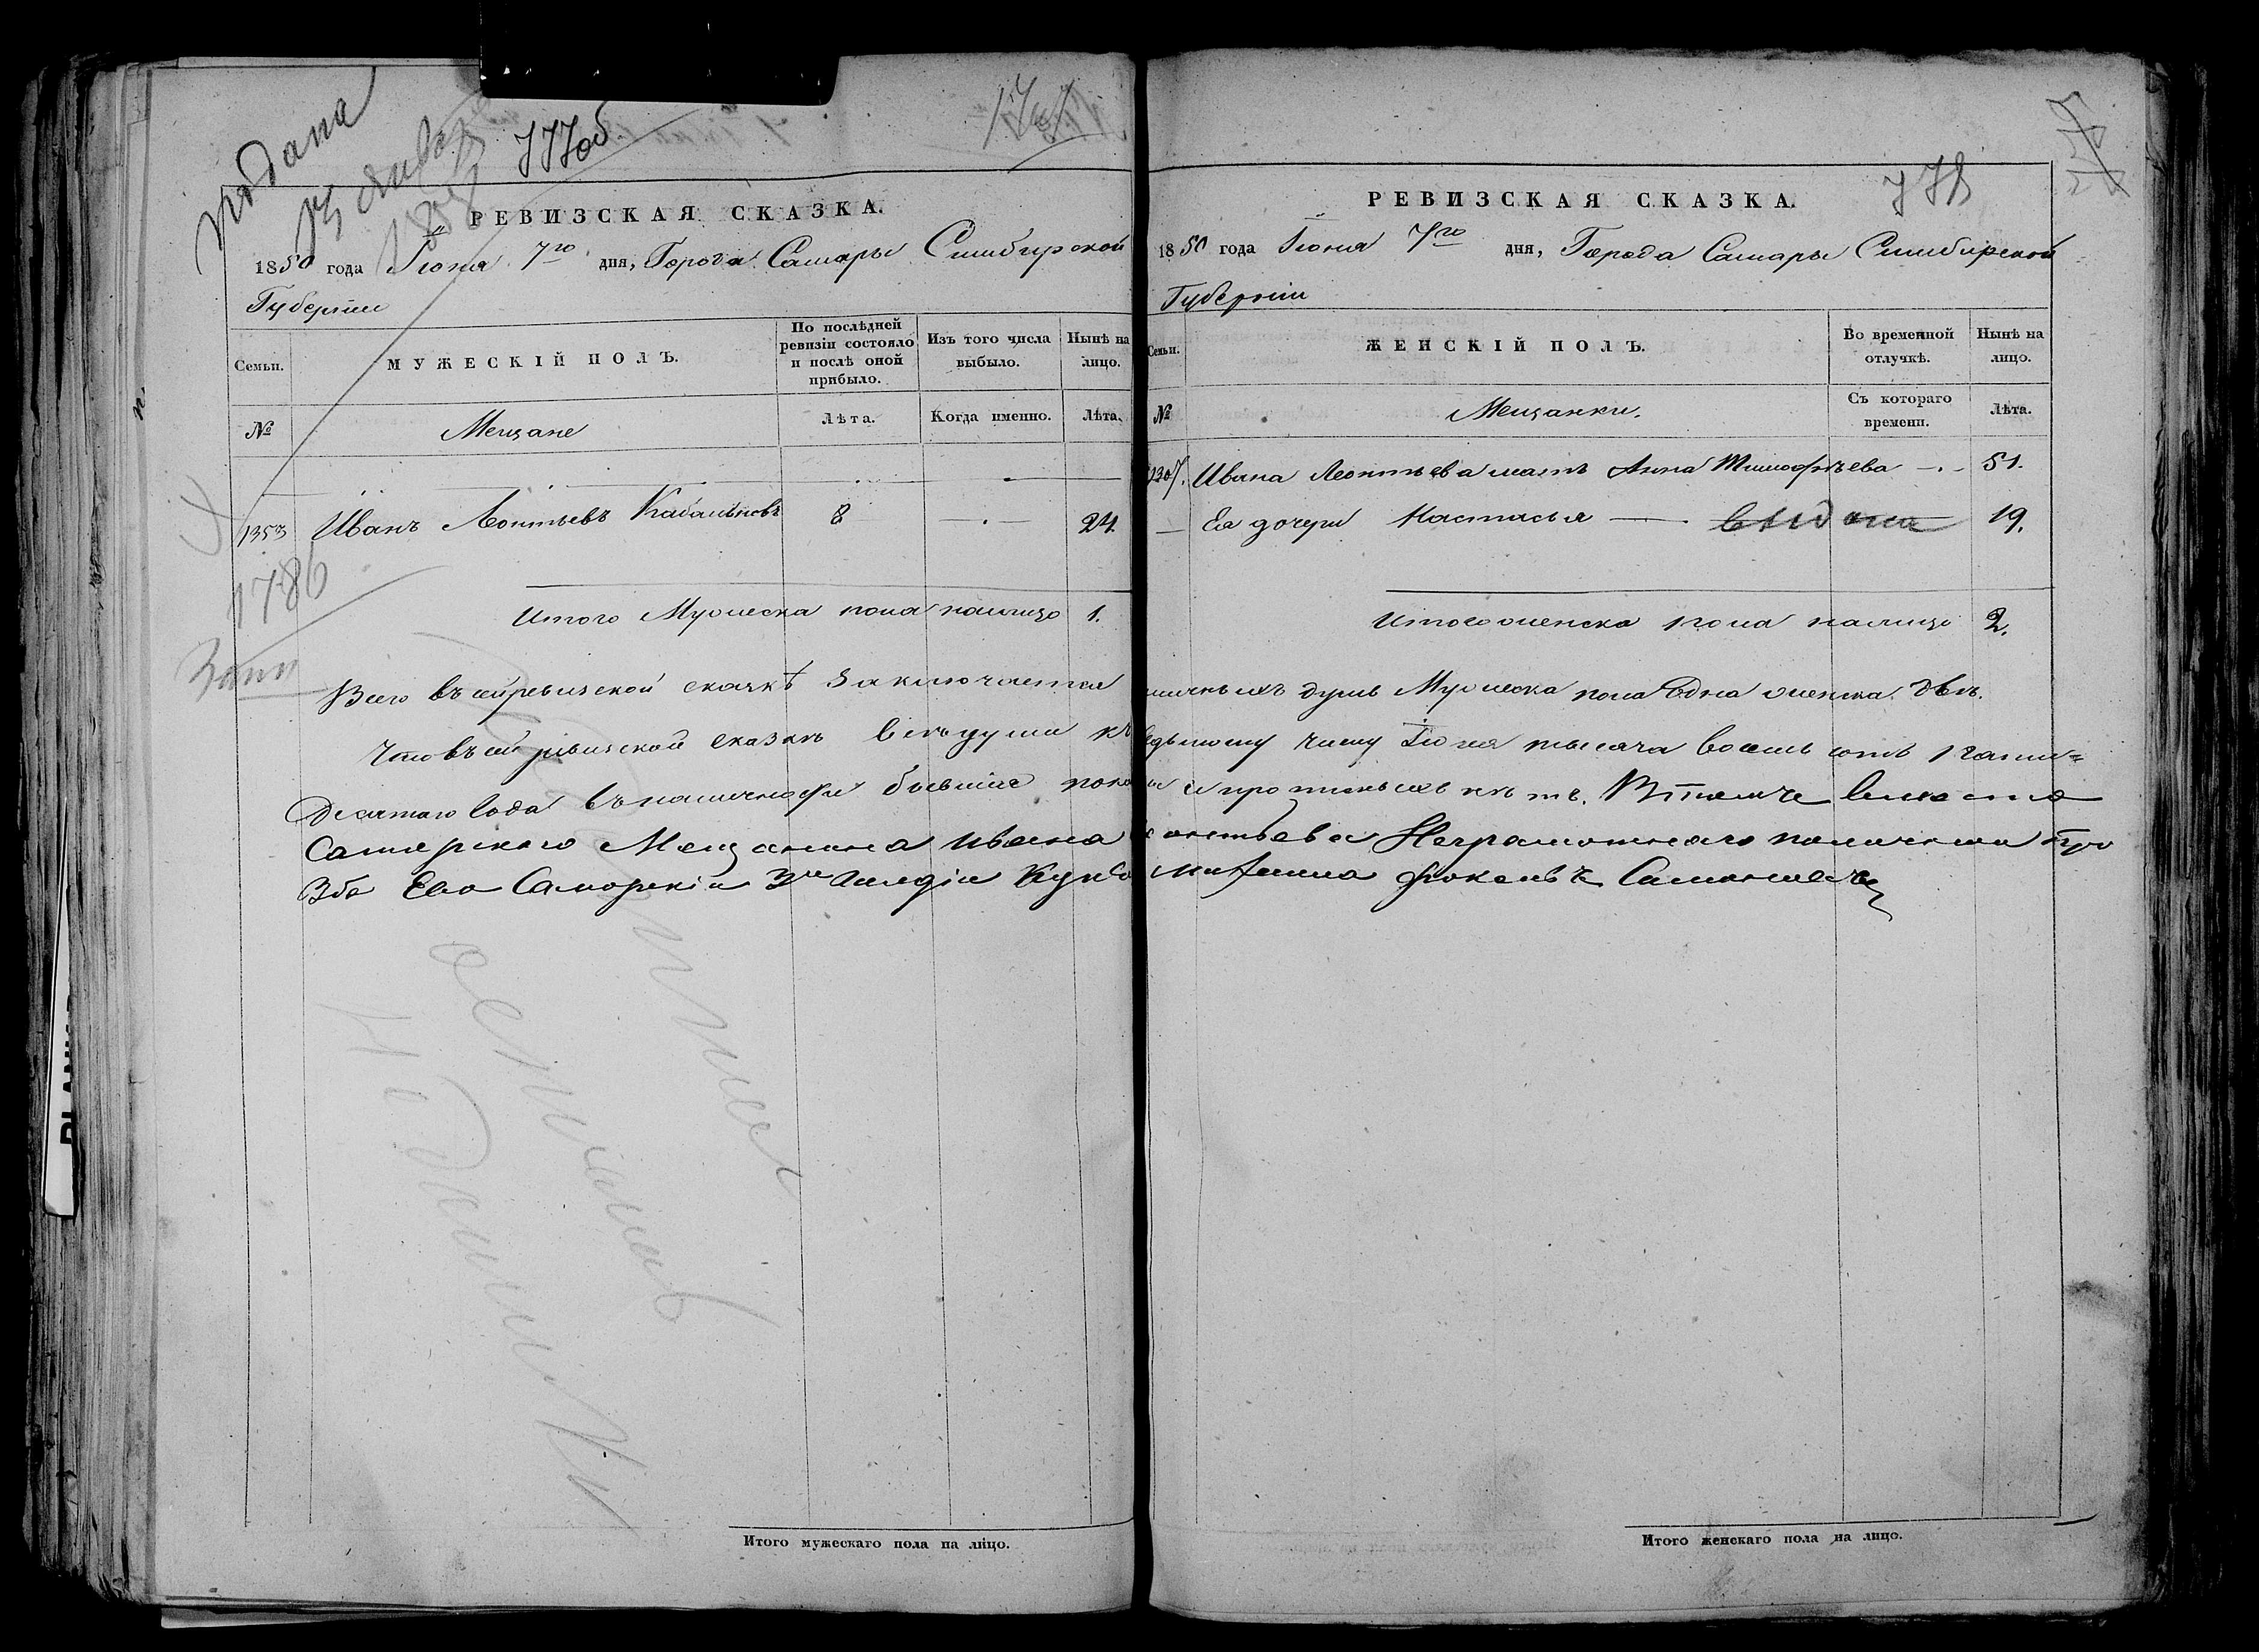 подана
777об.
РЕВИЗСКАЯ СКАЗКА.
1850 года Іюня 7го дня, Города Самары Симбирской
Губерніи
Семьи.
МУЖЕСКІЙ ПОЛЪ.
По послѣдней ревизіи состояло и послѣ оной прибыло.
Изъ того числа выбыло.
Нынѣ на лицо.
№
Мещане
Лѣта.
Когда именно.
Лѣта.
1353 Иванъ Леонтьевъ 8 24.
1786
Итого Мужеска пола налицо 1.
Всего въ сей ревизской сказкѣ заключается
Что въ сей ревизской сказкѣ всѣ души къ
десятаго года въ наличности бывшіе пока
Самерскаго Мещанина Ивана
Ево Саморкіи 3й Гилдіи
Итого мужескаго пола на лицо.
778
РЕВИЗСКАЯ СКАЗКА.
1850 года Іюня 7го дня, Города Самары Симбирской
Губерніи
Семьи.
ЖЕНСКІЙ ПОЛЪ.
Во временной отлучкѣ.
Нынѣ на лицо.
№
Мещанки.
Съ котораго времени.
Лѣта.
1307. Ивана Леонтьева мать Анна Тимофѣева 51.
Ея дочери Настасья выдана 19.
Итого женска пола налицо 2.
наличныхъ душъ Мужеска пола Одна женска двѣ.
седьмому числу Іюня тысяча восемь сотъ пяти=
и пропизныхъ нѣтъ.
Леонтьева Неграмотнаго
Итого женскаго пола на лицо.